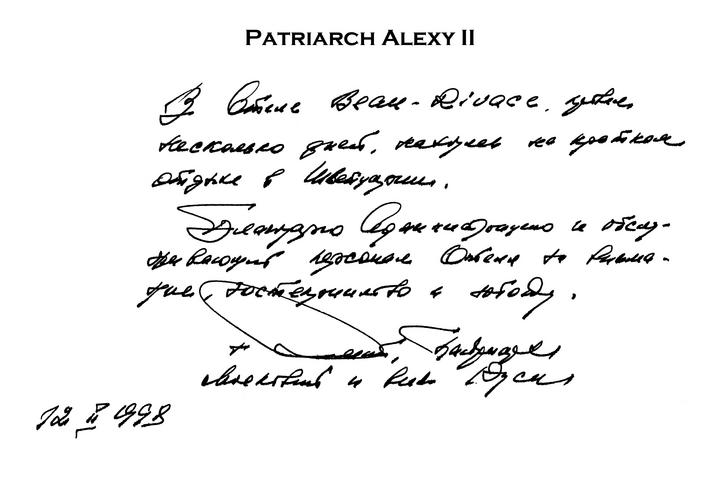 PATRIARCH ALEXY II
В Отеле Beau-Rivage, провел
несколько дней, находясь на кратком
отдыхе в Швейцарии.
Благодарю Администрацию и обслу-
живающий персонал Отеля за внима-
ние, гостеприимство и заботу.
+ Алексий, Патриарх
Московский и всея Руси
12 II 1998